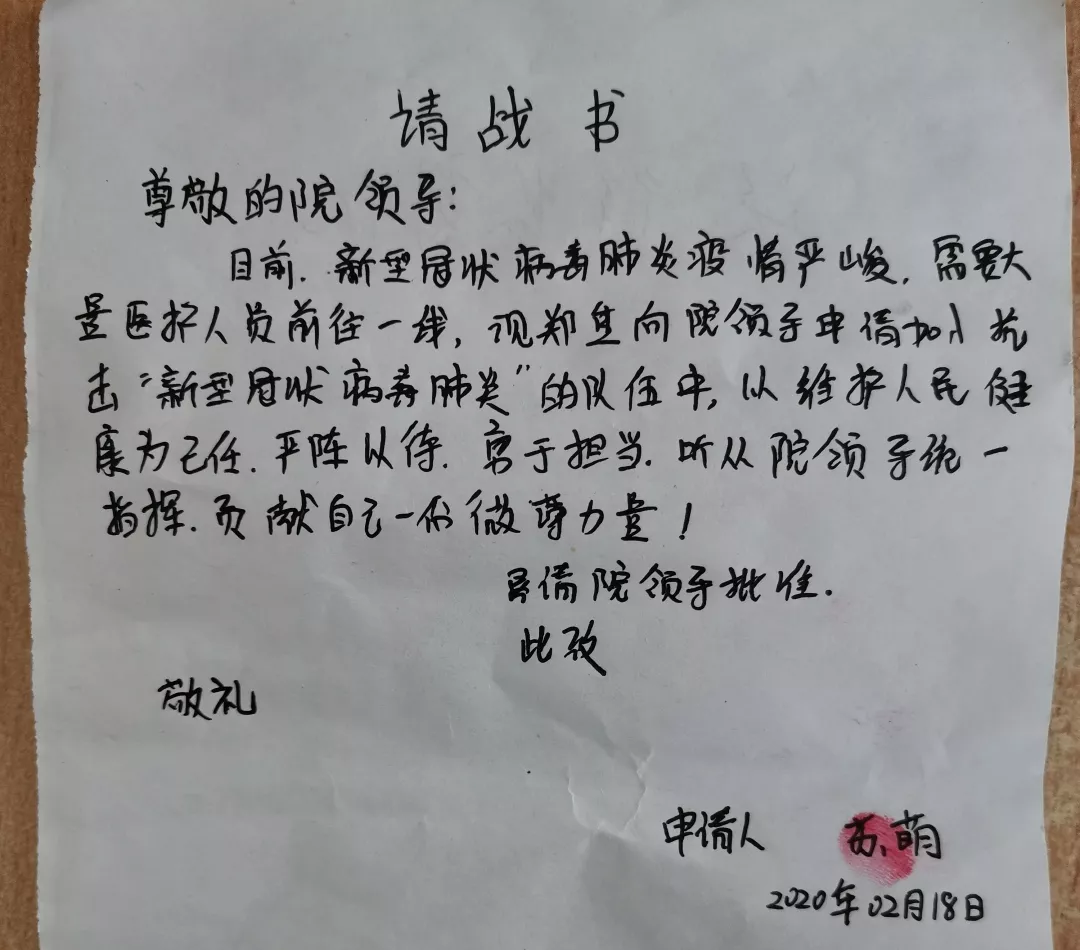 请战书
尊敬的院领导:
目前.新型冠状病毒肺炎疫情严峻,需要大
量医护人员前往一线,现郑重向院领导申请加入抗
击“新型冠状病毒肺炎”的队伍中,以维护人民健
康为己任.严阵以待.勇于担当.听从院领导统一
指挥.贡献自己一份微薄力量!
恳请院领导批准.
此致
敬礼
申请人 苏萌
2020年02月18日